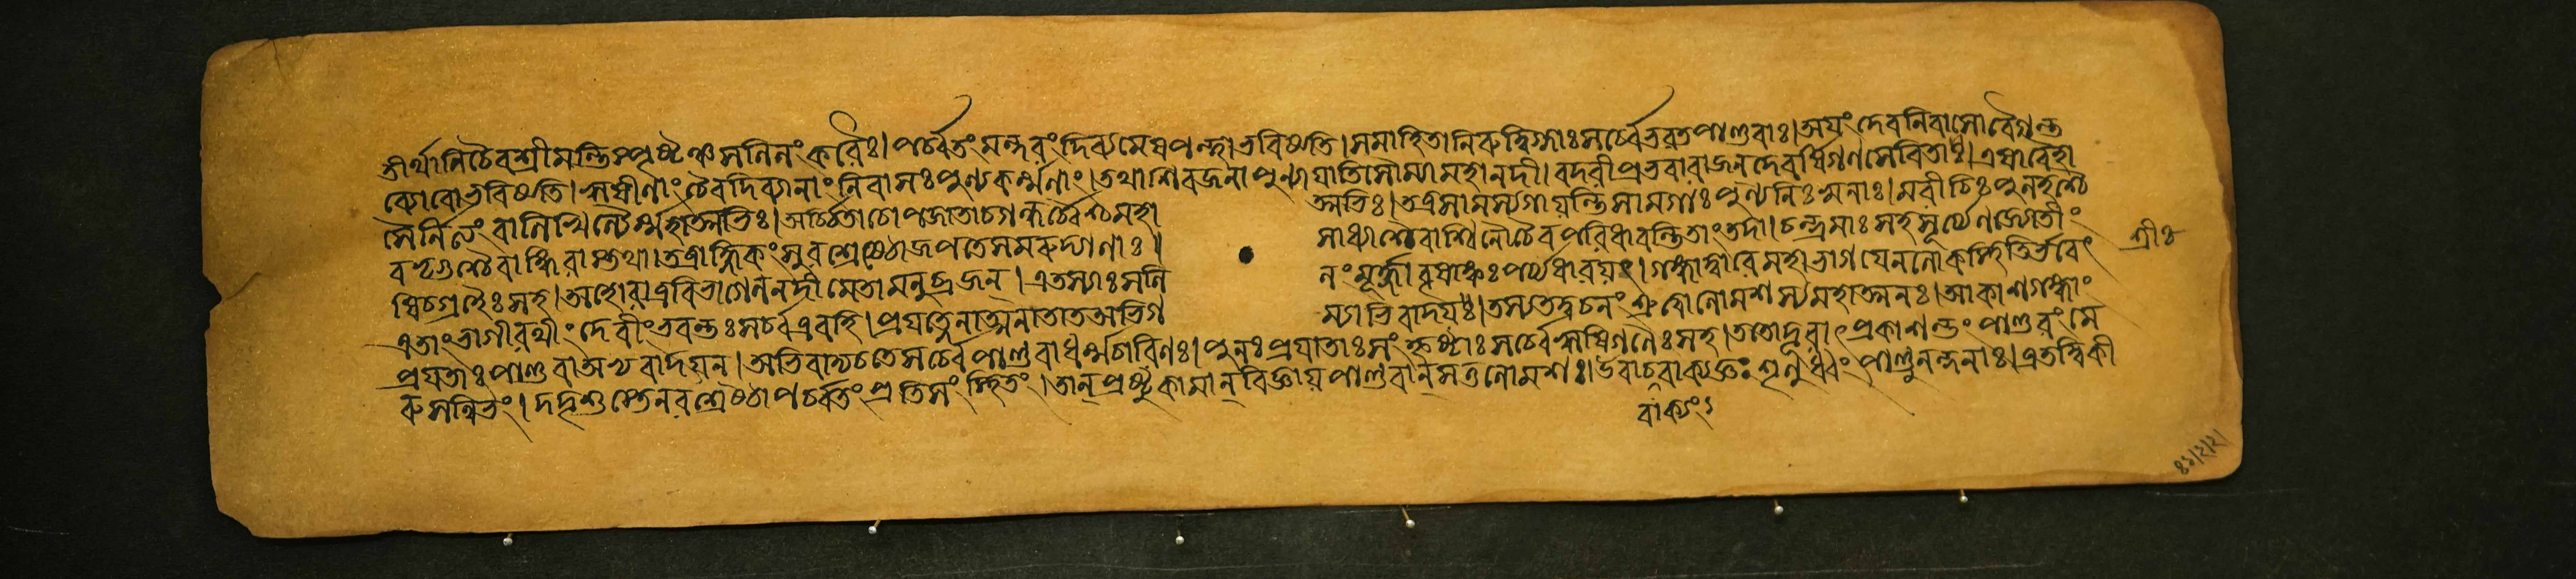 তীর্থানি চৈব শ্রীমন্তি স্পৃষ্টঞ্চ সলিলং করৈঃ। পর্ব্বতং মন্দরং দিব্যমেষ পন্থা ভবিষ্যতি। সমাহিতা নিরুদ্বিগ্নাঃ সর্ব্বে ভবত পাণ্ডবাঃ। অয়ং দেবনিবাসো বৈ গন্ত
ব্যো বো ভবিষ্যতি। ঋষীণাং চৈব দিব্যানাং নিবাসঃ পুণ্যকর্ম্মণাং। এষা শিবজলা পুণ্যা যাতি সৌম্য মহানদী। বদরীপ্রভবা রাজন্ দেবর্ষিগণসেবিতা। এষা বৈহা
য়সৈর্নিত্যং বালিখিল্যৈর্ম্মহাত্মভিঃ। অর্চ্চিতা চোপযাতা চ গন্ধর্ব্বৈশ্চ মহাত্মভিঃ। তত্র সাম স্ম গায়ন্তি সামগাঃ পুণ্যনিঃস্বনাঃ। মরীচিঃ পুলহশ্চৈ
ব ভৃগুশ্চৈবাঙ্গিরাস্তথা। তত্রাহ্নিকং সুরশ্রেষ্ঠো জপতে সমরুদ্গণঃ। সাধ্যাশ্চৈবাশ্বিনৌ চৈব পরিধাবন্তি তাং তদা। চন্দ্রমাঃ সহ সূর্য্যেণ জ্যোতীং
ষি চ গ্রহৈঃ সহ। অহোরাত্রবিভাগেন নদীমেতামনুব্রজন্। এতস্যাঃ সলিলং মূর্দ্ধ্না বৃষাঙ্কঃ পর্য্যধারয়ৎ। গঙ্গাদ্বারে মহাভাগ যেন লোকস্থিতির্ভবেৎ
এতাং ভাগীরথীং দেবীং ভবন্তঃ সর্ব্ব এব হি। প্রযতেনাত্মনা তাত অভিগম্যাভিবাদয়ঃ। তস্য তদ্বচনং শ্রুত্বা লোমশস্য মহাত্মনঃ। আকাশগঙ্গাং
প্রযতাঃ পাণ্ডবা অভ্যবাদয়ন্। অভিবাদ্য চ তে সর্ব্বে পাণ্ডবা ধর্ম্মচারিণঃ। পুনঃ প্রযাতাঃ সংহৃষ্টাঃ সর্ব্বে ঋষিগণৈঃ সহ। ততো দূরাৎ প্রকাশন্তং পাণ্ডুরং মে
রুসন্নিভং। দদৃশুস্তে নরশ্রেষ্ঠা পর্ব্বতং প্রতিসংস্থিতং। তান্ প্রষ্টুকামান্ বিজ্ঞায় পাণ্ডবান্ স তু লোমশঃ। উবাচ বাক্যজ্ঞঃ শৃণুধ্বং পাণ্ডুনন্দনাঃ। এতদ্বিকী
বাক্যং
শ্রীঃ